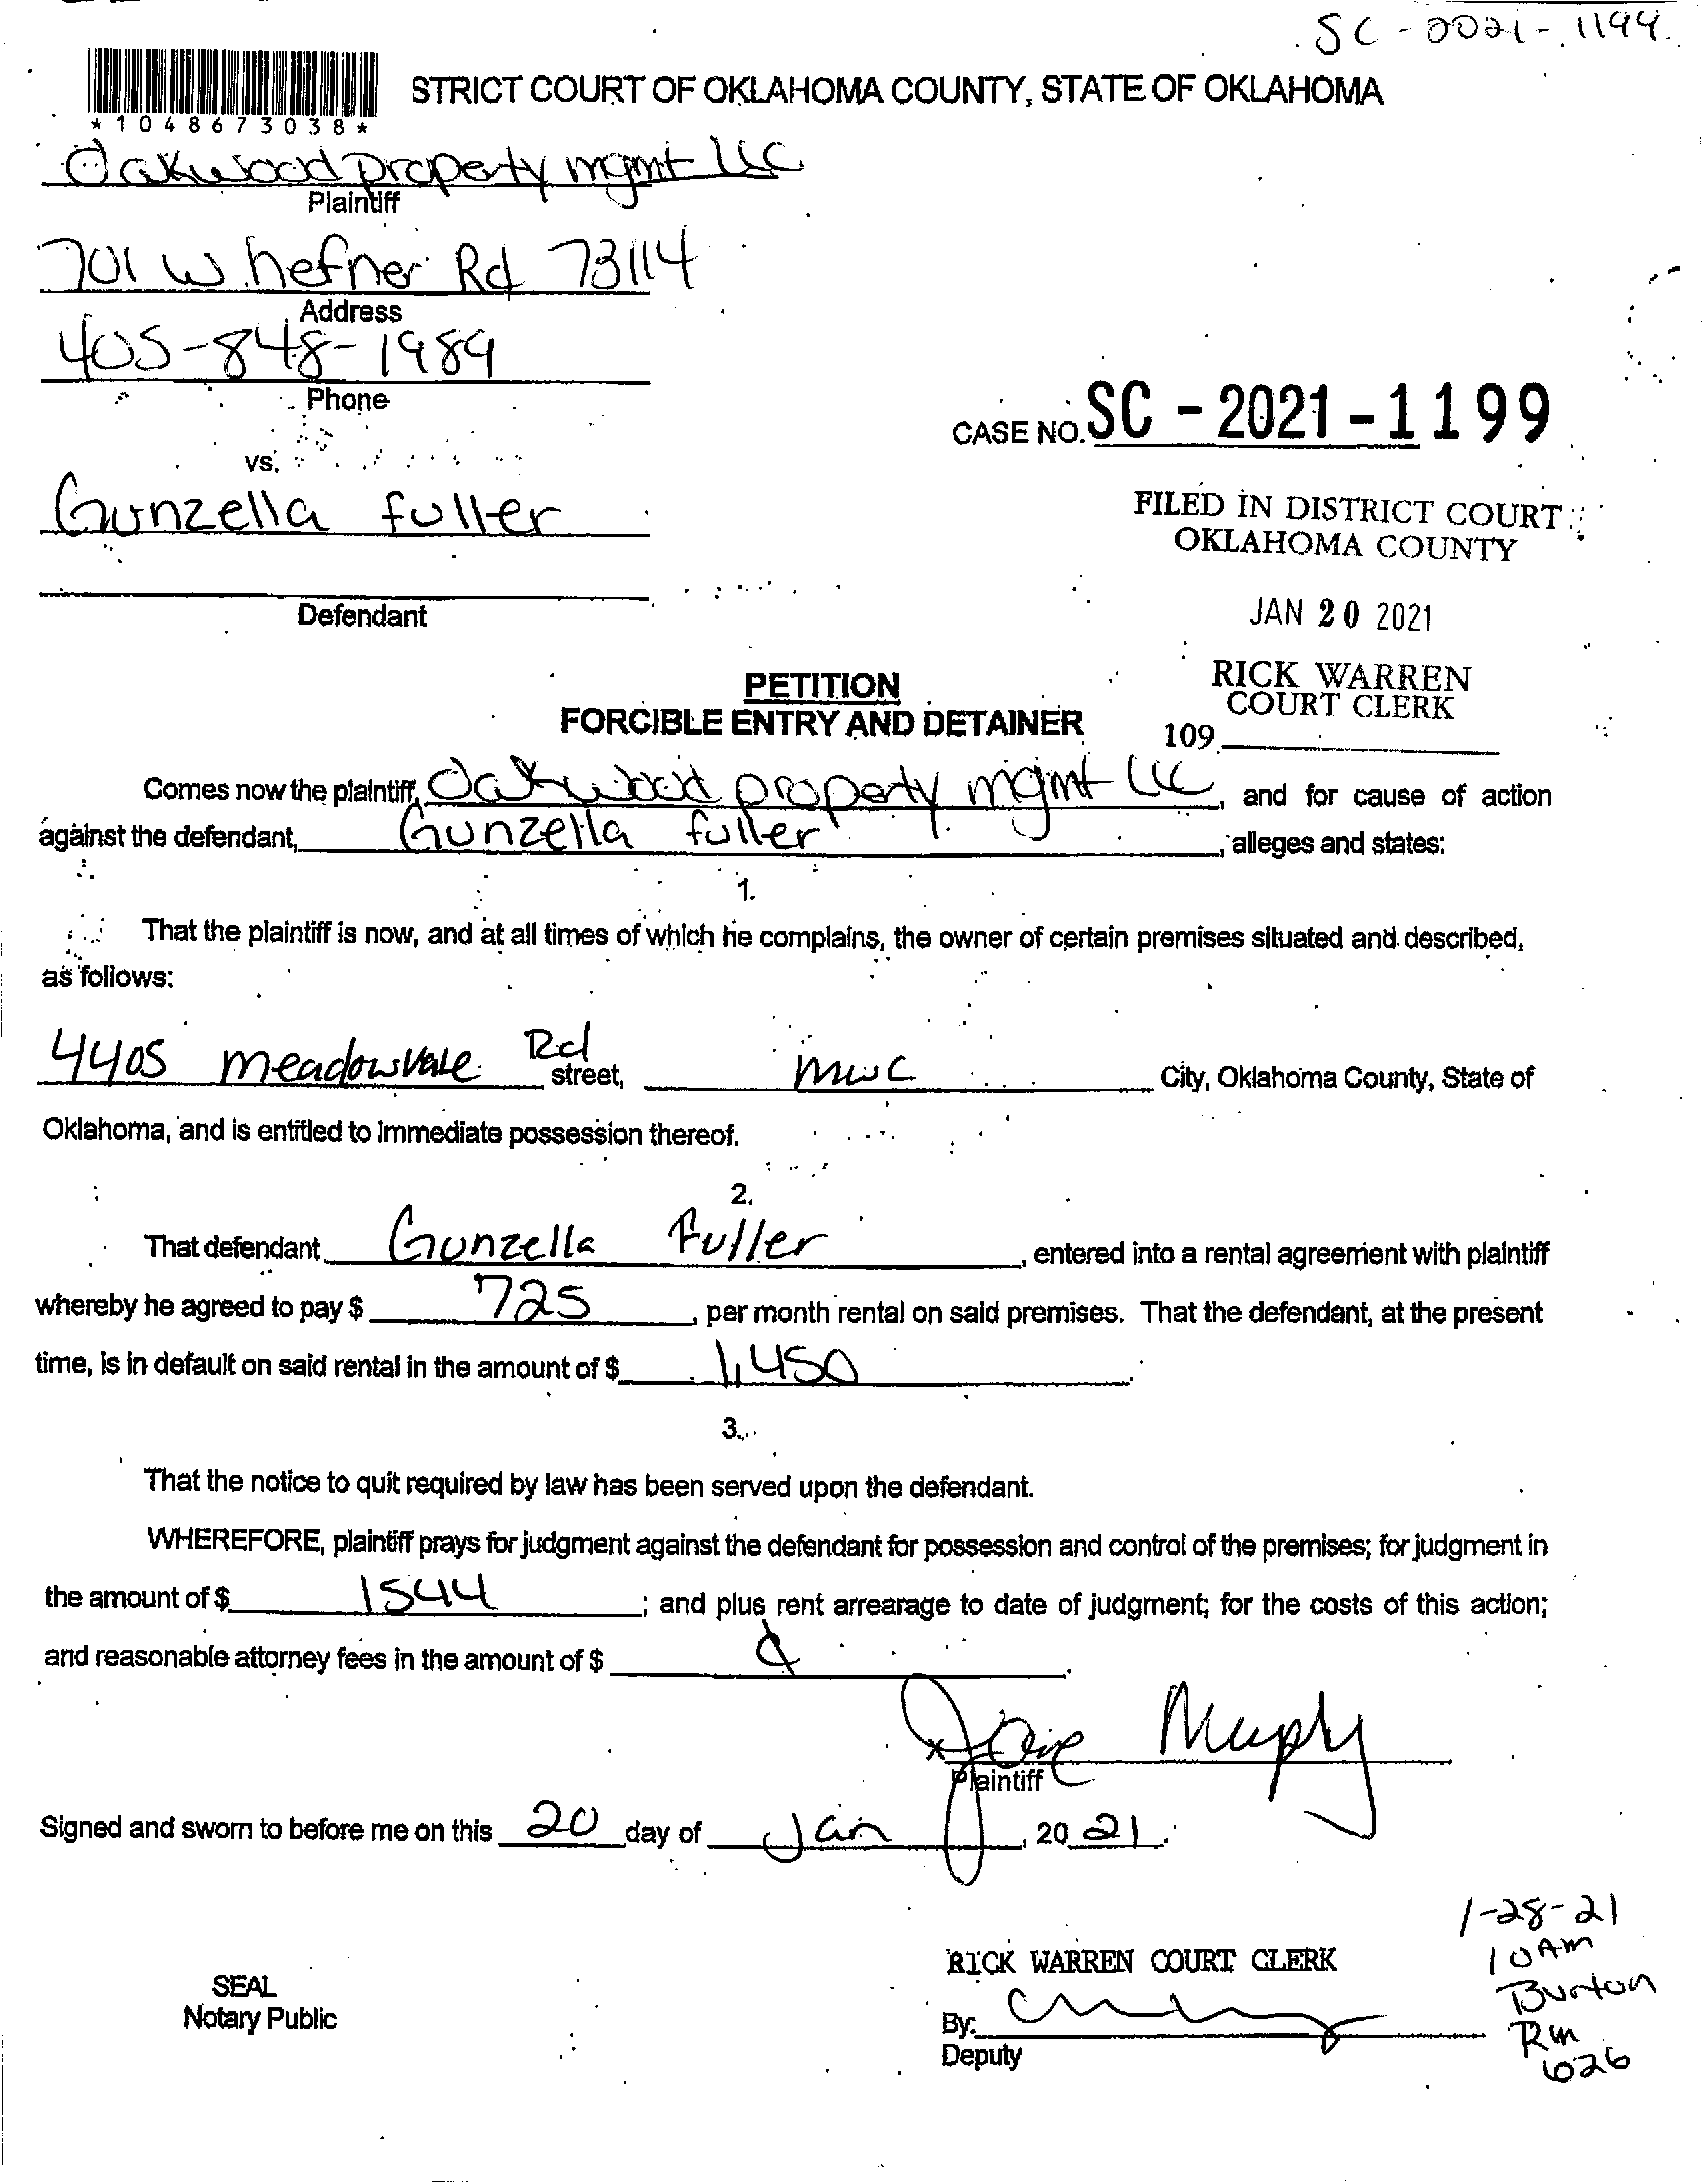 SC-2021-1199
STRICT COURT OF OKLAHOMA COUNTY, STATE OF OKLAHOMA
*1048673038*
Oakwood property mgmt LLC
Plaintiff
701 W hefner Rd 73114
Address
405-848-1989
Phone
CASE NO. SC - 2021 - 1199
vs.
Gunzella fuller
FILED IN DISTRICT COURT
OKLAHOMA COUNTY
Defendant
JAN 20 2021
RICK WARREN
COURT CLERK
109
PETITION
FORCIBLE ENTRY AND DETAINER
Comes now the plaintiff, Oakwood property mgmt LLC, and for cause of action
against the defendant, Gunzella fuller, alleges and states:
1.
That the plaintiff is now, and at all times of which he complains, the owner of certain premises situated and described,
as follows:
4405 meadowvale Rd street, mwc City, Oklahoma County, State of
Oklahoma, and is entitled to immediate possession thereof.
2.
That defendant Gunzella Fuller, entered into a rental agreement with plaintiff
whereby he agreed to pay $ 725, per month rental on said premises. That the defendant, at the present
time, is in default on said rental in the amount of $ 1,450.
3.
That the notice to quit required by law has been served upon the defendant.
WHEREFORE, plaintiff prays for judgment against the defendant for possession and control of the premises; for judgment in
the amount of $ 1544; and plus rent arrearage to date of judgment; for the costs of this action;
and reasonable attorney fees in the amount of $
x Murphy
Plaintiff
Signed and sworn to before me on this 20 day of Jan, 2021.
1-28-21
10 AM
Burton
Rm
626
RICK WARREN COURT CLERK
SEAL
Notary Public
By:
Deputy